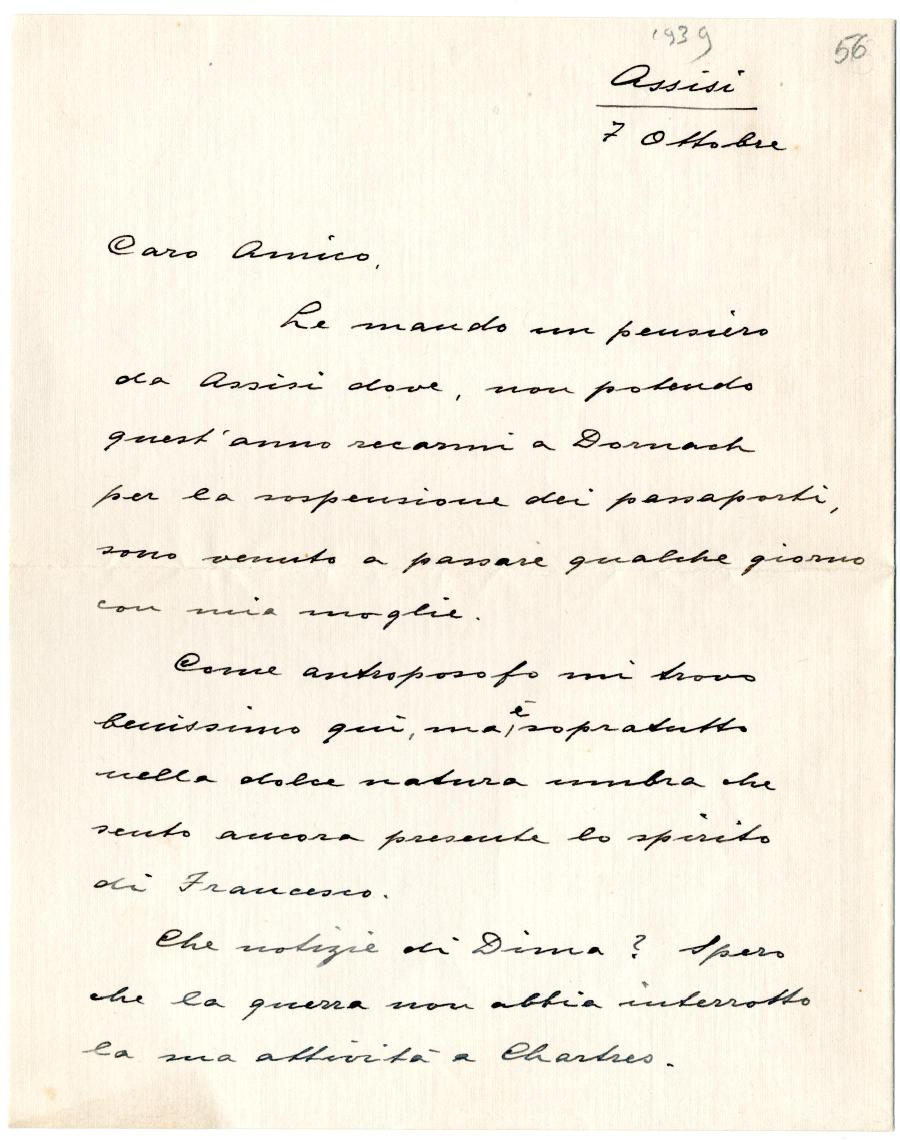 1939
56
Assisi
7 Ottobre
Caro Amico,
Le mando un pensiero
da Assisi dove, non potendo
quest'anno recarmi a Dornach
per la sospensione dei passaporti,
sono venuto a passare qualche giorno
con mia moglie.
Come antroposofo mi trovo
benissimo qui, ma, è sopratutto
nella dolce natura umbra che
sento ancora presente lo spirito
di Francesco.
Che notizie di Dima? Spero
che la guerra non abbia interrotto
la sua attività a Chartres.